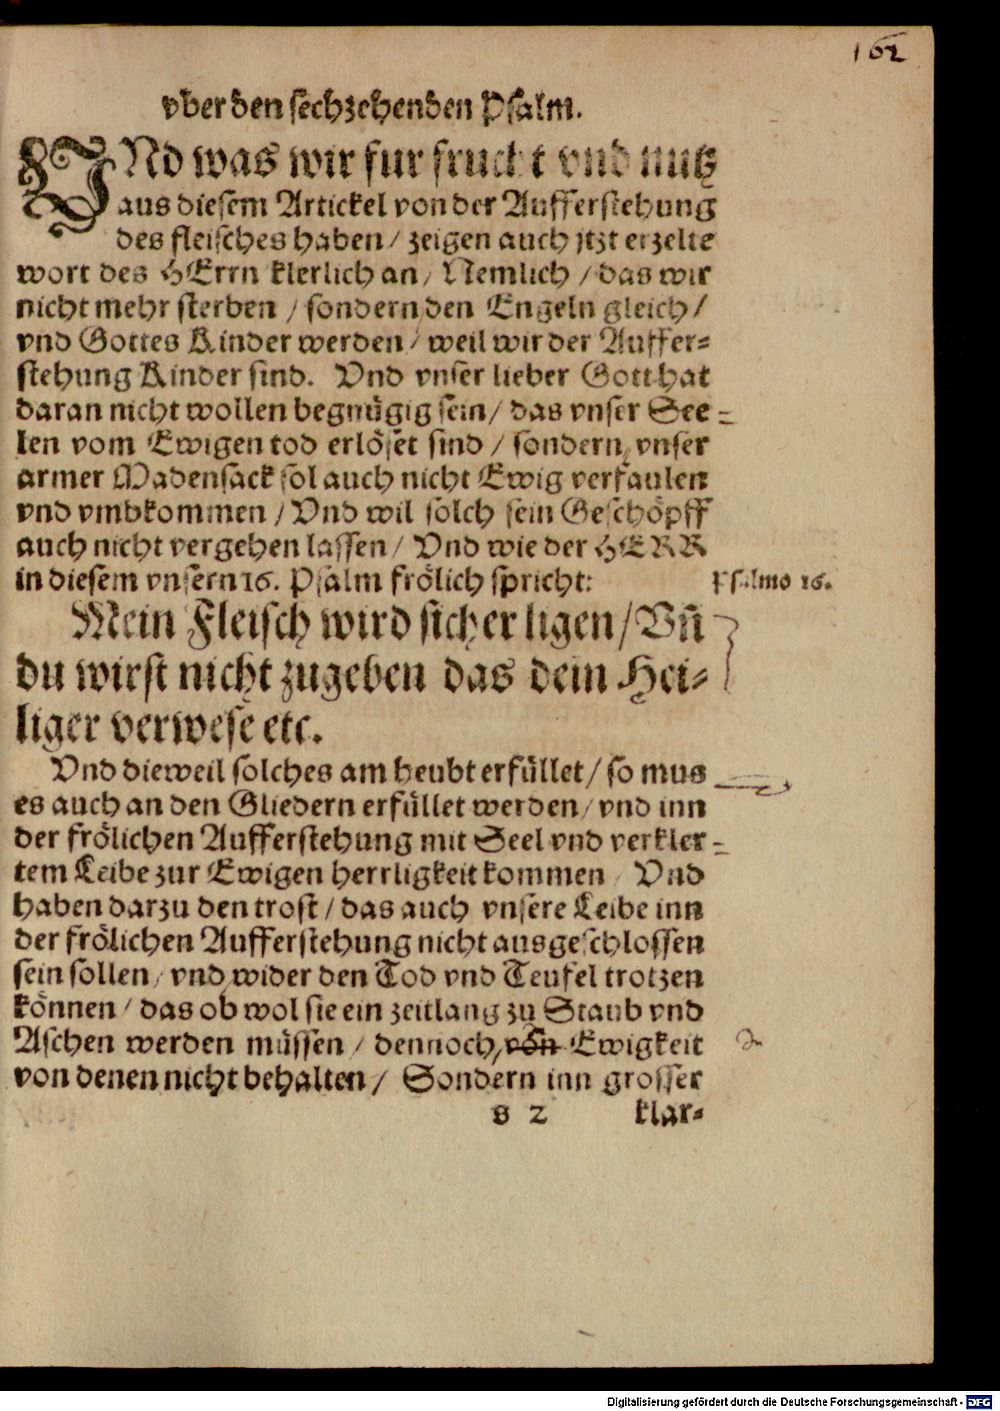 162
vber den sechzehenden Psalm.
VNd was wir fur frucht vnd nutz
aus diesem Artickel von der Aufferstehung
des fleisches haben / zeigen auch jtzt erzelte
wort des HErrn klerlich an / Nemlich / das wir
nicht mehr sterben / sondern den Engeln gleich /
vnd Gottes Kinder werden / weil wir der Auffer-
stehung Kinder sind. Vnd vnser lieber Gott hat
daran nicht wollen begnügig sein / das vnser See-
len vom Ewigen tod erlöset sind / sondern vnser
armer Madensack sol auch nicht Ewig verfaulen
vnd vmbkommen / Vnd wil solch sein Geschöpff
auch nicht vergehen lassen / Vnd wie der HERR
in diesem vnsern 16. Psalm frölich spricht: Psalmo 16.
Mein Fleisch wird sicher ligen / Vñ
du wirst nicht zugeben das dein Hei-
liger verwese etc.
Vnd dieweil solches am heubt erfüllet / so mus
es auch an den Gliedern erfüllet werden / vnd inn
der frölichen Aufferstehung mit Seel vnd verkler-
tem Leibe zur Ewigen herrligkeit kommen / Vnd
haben darzu den trost / das auch vnsere Leibe inn
der frölichen Aufferstehung nicht ausgeschlossen
sein sollen / vnd wider den Tod vnd Teufel trotzen
können / das ob wol sie ein zeitlang zu Staub vnd
Aschen werden müssen / dennoch / von Ewigkeit
von denen nicht behalten / Sondern inn grosser
s 2 klar-
Digitalisierung gefördert durch die Deutsche Forschungsgemeinschaft - DFG